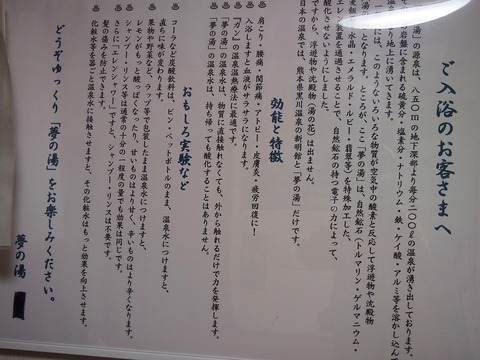 ご入浴のお客さまへ
湯」の源泉は、八五〇mの地下深部より毎分二〇〇ℓの温泉が湧き出しております。
の岩盤に含まれる硫黄分・塩素分・ナトリウム・鉄・ケイ酸・アルミ等を溶かし込ん
り地上に湧いてきます。
には、このようないろいろな物質が空気中の酸素と反応して浮遊物や沈殿物
となります。ところが、ここ「夢の湯」は、自然鉱石(トルマリン・ゲルマニウム・
麦飯石・水晶・エメラルド・ルビー・翡翠等)を特殊加工した、
エレン装置を通過させることで、自然鉱石の持つ電子の力によって、
酸化させないようにしました。
ですから、浮遊物や沈殿物(湯の花)は出ません。
日本の温泉では、熊本県黒川温泉の新明館と「夢の湯」だけです。
効能と特徴
♨肩こり・腰痛・関節痛・アトピー・皮膚炎・疲労回復に!
♨入浴しますと血液がサラサラになります。
♨「ガン」の温泉温熱療法に最適です。
♨「夢の湯」の温泉水は、物質に直接触れなくても、外から触れるだけで力を発揮します。
♨「夢の湯」の温泉水は、持ち帰っても酸化することはありません。
おもしろ実験など
♨コーラなど炭酸飲料は、ビン・ペットボトルのまま、温泉水につけますと、
直ちに味が変わります。
♨果物や野菜など、ラップ等で包装したまま温泉水につけますと、
レモンがもっと酸っぱくなったり、甘いものはより甘く、辛いものはより辛くなります。
♨シャンプー・リンス等は通常の十分の一程度の量でも効果は同じです。
さらに「エレンシャワー」ですと、シャンプー・リンスは不要です。
髪の傷みを防止できます。
♨化粧水等を器ごと温泉水に接触させますと、その化粧水はもっと効果を向上させます。
どうぞゆっくり「夢の湯」をお楽しみください。
夢の湯